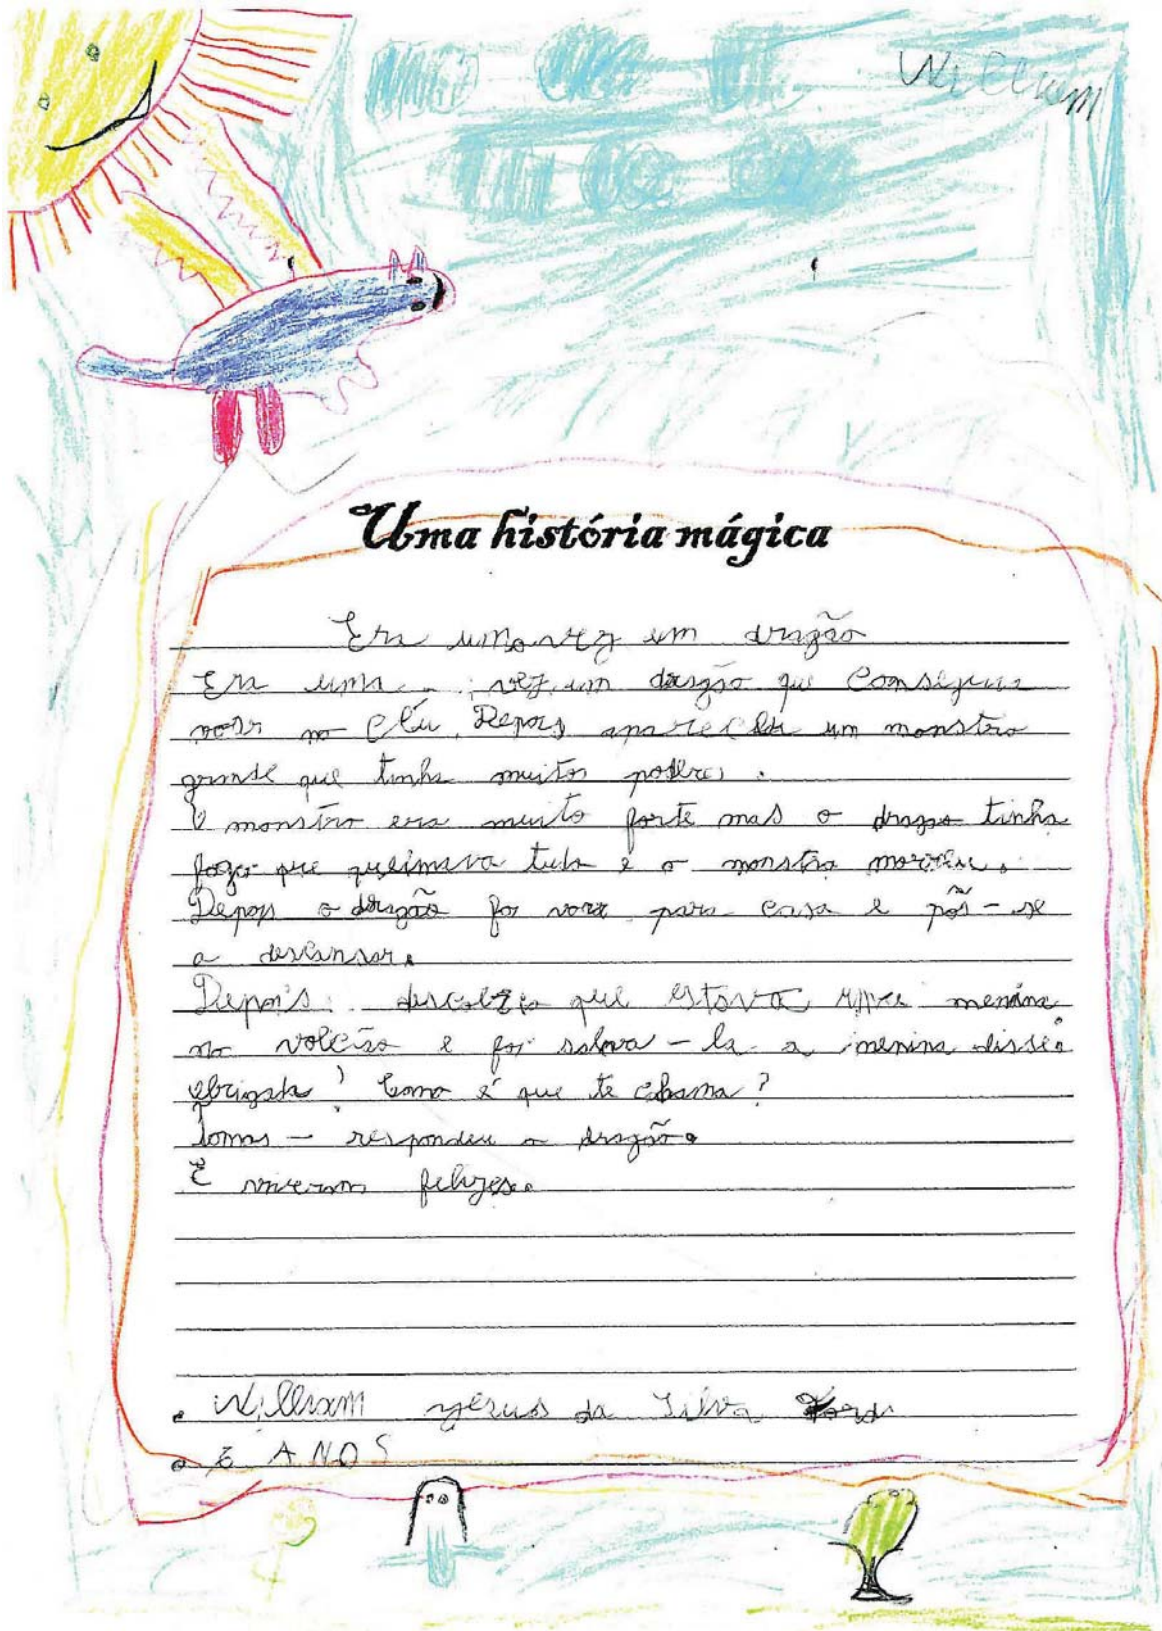 William
Uma história mágica
Era uma vez um dragão
Era uma vez um dragão que conseguia
voar no Céu. Depois apareceu um monstro
grande que tinha muitos poderes.
O monstro era muito forte mas o dragão tinha
fogo que queimava tudo e o monstro morreu.
Depois o dragão foi voar para casa e pôs-se
a descansar.
Depois descobriu que estava uma menina
no volcão e foi salva-la a menina disse.
obrigada! Como é que te chama?
Tomas - respondeu o dragão.
E viveram felizes.
William Jesus da Silva
ANOS